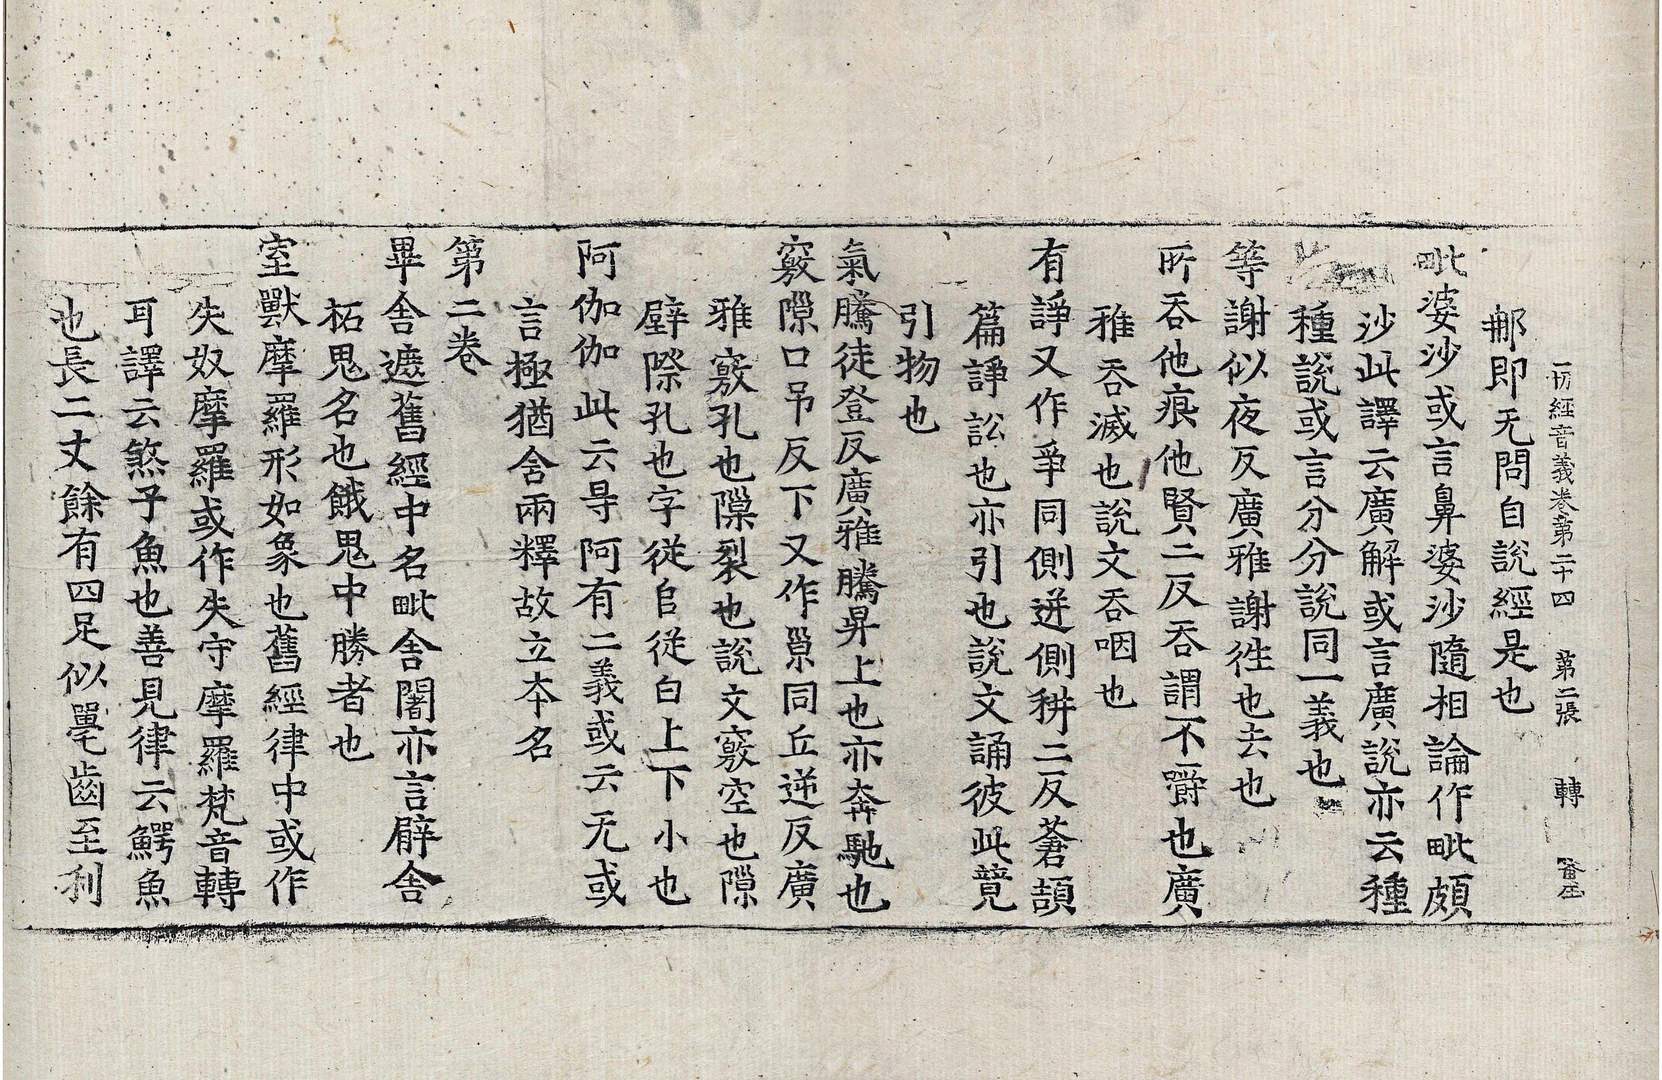 一切經音義卷第二十四　第二張　轉
䣕即无問自說經是也
毗婆沙或言鼻婆沙隨相論作毗頗
沙此譯云廣解或言廣說亦云種
種說或言分分說同一義也
等謝似夜反廣雅謝徃也去也
所吞他痕他賢二反吞謂不嚼也廣
雅吞滅也說文吞咽也
有諍又作爭同側迸側耕二反蒼頡
篇諍訟也亦引也說文誦彼此覓
引物也
氣騰徒登反廣雅騰昇上也亦奔馳也
竅隙口吊反下又作𡭴同丘逆反廣
雅竅孔也隟裂也說文竅空也隙
壁際孔也字從𨸏從白上下小也
阿伽伽此云㝵阿有二義或云无或
言極猶含兩釋故立本名
第二卷
畢舍遮舊經中名毗舍闍亦言臂舍
柘鬼名也餓鬼中勝者也
室獸摩羅形如象也舊經律中或作
失奴摩羅或作失守摩羅梵音轉
耳譯云煞子魚也善見律云鰐魚
也長二丈餘有四足似鼉齒至利